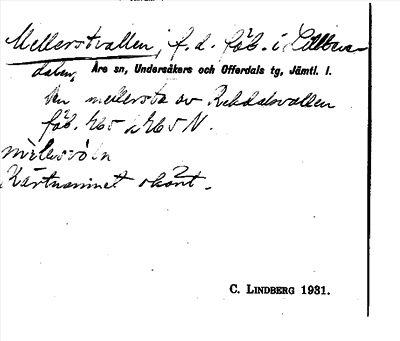 Mellerstvallen, f.d. fäb. i Lillbua-
dalen, Åre sn, Undersåkers och Offerdals tg, Jämtl. l.
Den mellersta av Rekdalsvallen
fäb. 465 2465 N.
Kartnamnet okänt.
C. LINDBERG 1931.